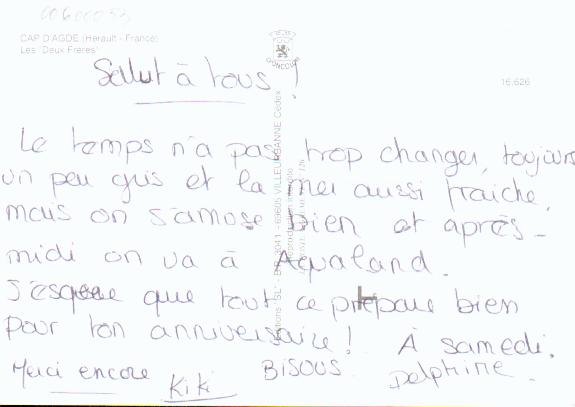 00600053
CAP D'AGDE (Herault - France)
Les "Deux Frères"
GONCOURT
16.626
Salut à tous !
Le temps n'a pas trop changer, toujours
un peu gris et la mer aussi fraiche,
mais on s'amuse bien et après-
midi on va à Aqualand.
J'espere que tout ce prépare bien
pour ton anniversaire ! À samedi.
Merci encore Kiki BISOUS. Delphine.
Editions "SL" - B.P. 3041 - 69605 VILLEURBANNE Cédex
Reproduction interdite